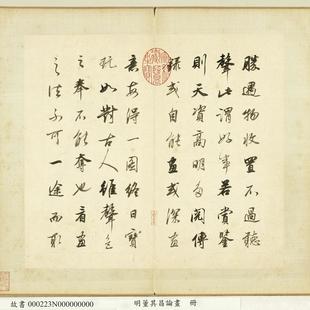 勝遇物收置不過聽
聲此謂好事若賞鑒
則天資高明多閱傳
錄或自能畫或深畫
意每得一圖終日寶
玩如對古人雖聲色
之奉不能奪也看畫
之法不可一途而取
故書 000223N000000000
明董其昌論畫 冊